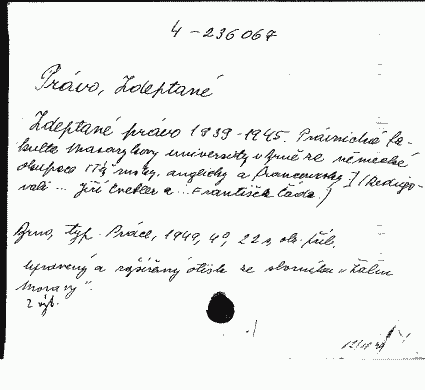 4-236067
Právo, Zdeptané
Zdeptané právo 1939-1945. Právnická fa-
kulta Masarykovy university v Brně za německé
okupace [Též rusky, anglicky a francouzsky.] (Redigo-
vali ... Jiří Cvekler a ... František Čáda.)
Brno, typ. Práce, 1949, 4°, 22 s, obr. příl.
Upravený a rozšířený otisk ze sborníku "Žaluji
Moravy".
2 výt.